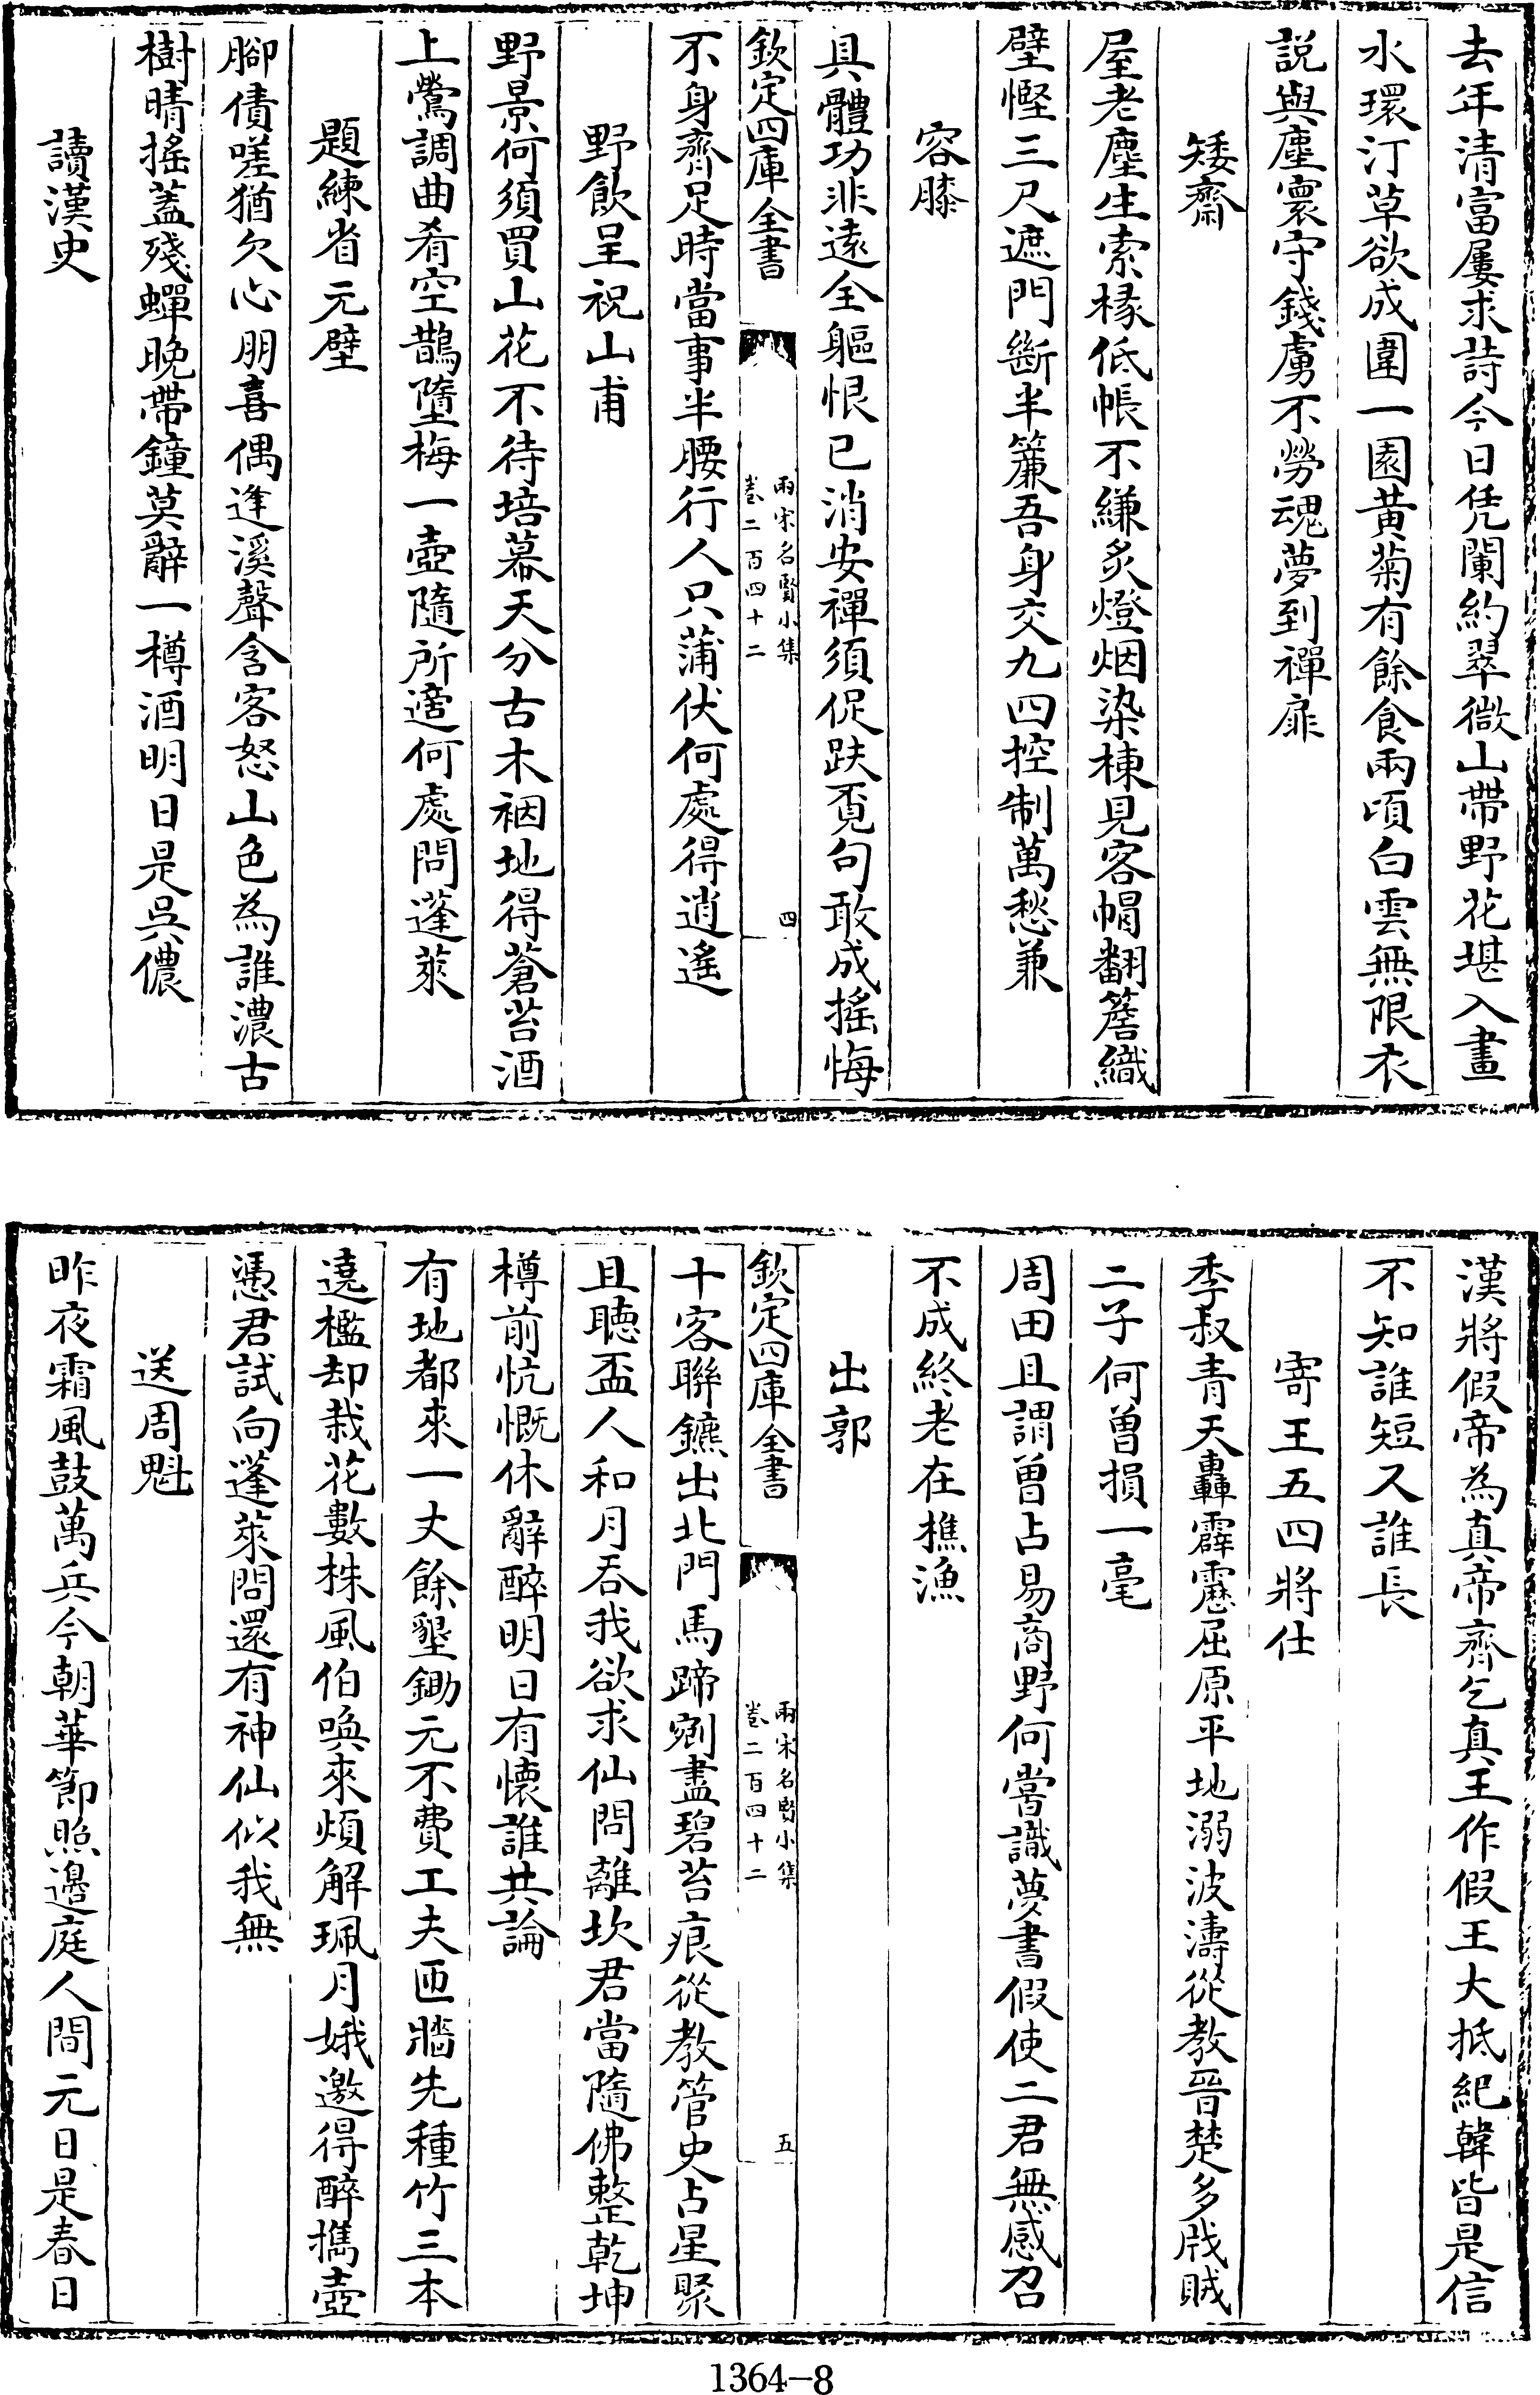 去年清富屢求詩今日凭闌約翠微山帶野花堪入畫
水環汀草欲成圍一園黃菊有餘食兩頃白雲無限衣
説與塵寰守錢虜不勞魂夢到禪扉
矮齋
屋老塵生索椽低帳不縑炙燈烟染棟見客帽翻簷織
壁慳三尺遮門斷半簾吾身交九四控制萬愁兼
容膝
具體功非遠全軀恨已消安禪須促趺覓句敢成搖悔
欽定四庫全書
兩宋名賢小集
卷二百四十二
四
不身齊足時當事半腰行人只蒲伏何處得逍遙
野飲呈祝山甫
野景何須買山花不待培幕天分古木裀地得蒼苔酒
上鶯調曲肴空鵲墮梅一壺隨所適何處問蓬萊
題練省元壁
腳債嗟猶欠心朋喜偶逢溪聲含客怒山色為誰濃古
樹晴搖蓋殘蟬晚帶鐘莫辭一樽酒明日是吳儂
讀漢史
漢將假帝為真帝齊乞真王作假王大抵紀韓皆是信
不知誰短又誰長
寄王五四將仕
季叔青天轟霹靂屈原平地溺波濤從教晉楚多戕賊
二子何曾損一毫
周田且謂曾占易商野何嘗識夢書假使二君無感召
不成終老在樵漁
出郭
欽定四庫全書
兩宋名賢小集
卷二百四十二
五
十客聯鑣出北門馬蹄剜盡碧苔痕從教管史占星聚
且聽盃人和月吞我欲求仙問離坎君當隨佛整乾坤
樽前忼慨休辭醉明日有懷誰共論
有地都來一丈餘墾鋤元不費工夫匝牆先種竹三本
遶檻却栽花數株風伯喚來煩解珮月娥邀得醉攜壺
憑君試向蓬萊問還有神仙似我無
送周魁
昨夜霜風鼓萬兵今朝華節照邊庭人間元日是春日
1364-8